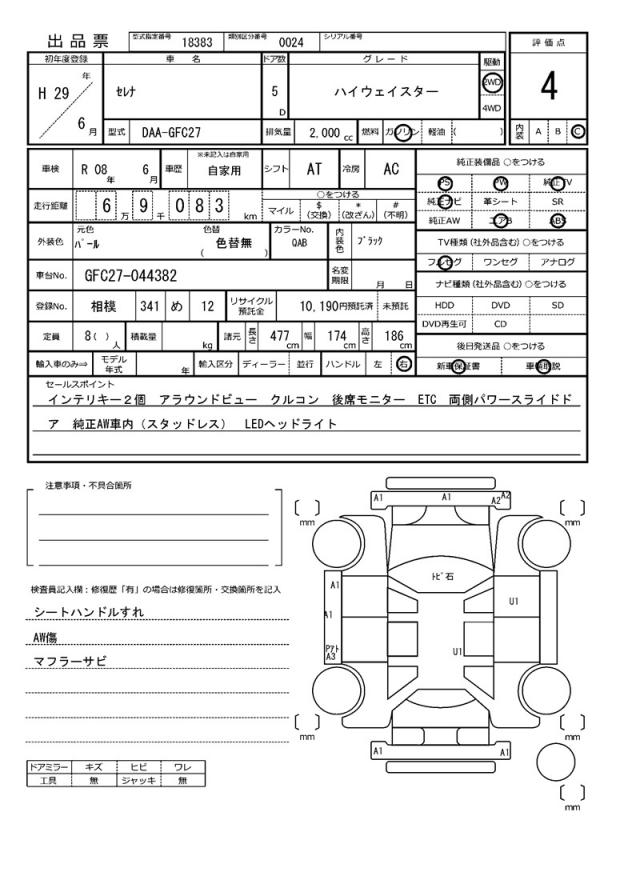 出品票 型式指定番号 18383 類別区分番号 0024 シリアル番号
評価点
初年度登録 車名 ドア数 グレード 駆動
H 29 年 6 月 セレナ 5 D ハイウェイスター 2WD 4WD
4
型式 DAA-GFC27 排気量 2,000 cc 燃料 ガソリン 軽油 ( )
内装 A B C
車検 R 08 年 6 月 車歴 ※未記入は自家用 自家用 シフト AT 冷房 AC
純正装備品 ○をつける
PS PW 純正TV
純正ナビ 革シート SR
純正AW エアB ABS
走行距離 6 万 9 千 0 8 3 km ○をつける
マイル $ (交換) * (改ざん) # (不明)
TV種類 (社外品含む) ○をつける
フルセグ ワンセグ アナログ
外装色 元色 パール 色替 ( 色替無 ) カラーNo. QAB 内装色 ブラック
車台No. GFC27-044382 名変期限 月 日
ナビ種類 (社外品含む) ○をつける
HDD DVD SD
DVD再生可 CD
登録No. 相模 341 め 12 リサイクル預託金 10,190円預託済 未預託
定員 8( ) 人 積載量 kg 諸元 長さ 477 cm 幅 174 cm 高さ 186 cm
後日発送品 ○をつける
新車保証書 車輌取説
輸入車のみ⇒ モデル年式 年 輸入区分 ディーラー 並行 ハンドル 左 右
セールスポイント
インテリキー２個 アラウンドビュー クルコン 後席モニター ETC 両側パワースライドド
ア 純正AW車内（スタッドレス） LEDヘッドライト
注意事項・不具合箇所
検査員記入欄：修復歴「有」の場合は修復箇所・交換箇所を記入
シートハンドルすれ
AW傷
マフラーサビ
ドアミラー キズ ヒビ ワレ
工具 無 ジャッキ 無
A1 A1 A2 A2
mm mm
トビ石
A1 U1
A1
Pアト A3 U1
mm mm
A1 A1
mm